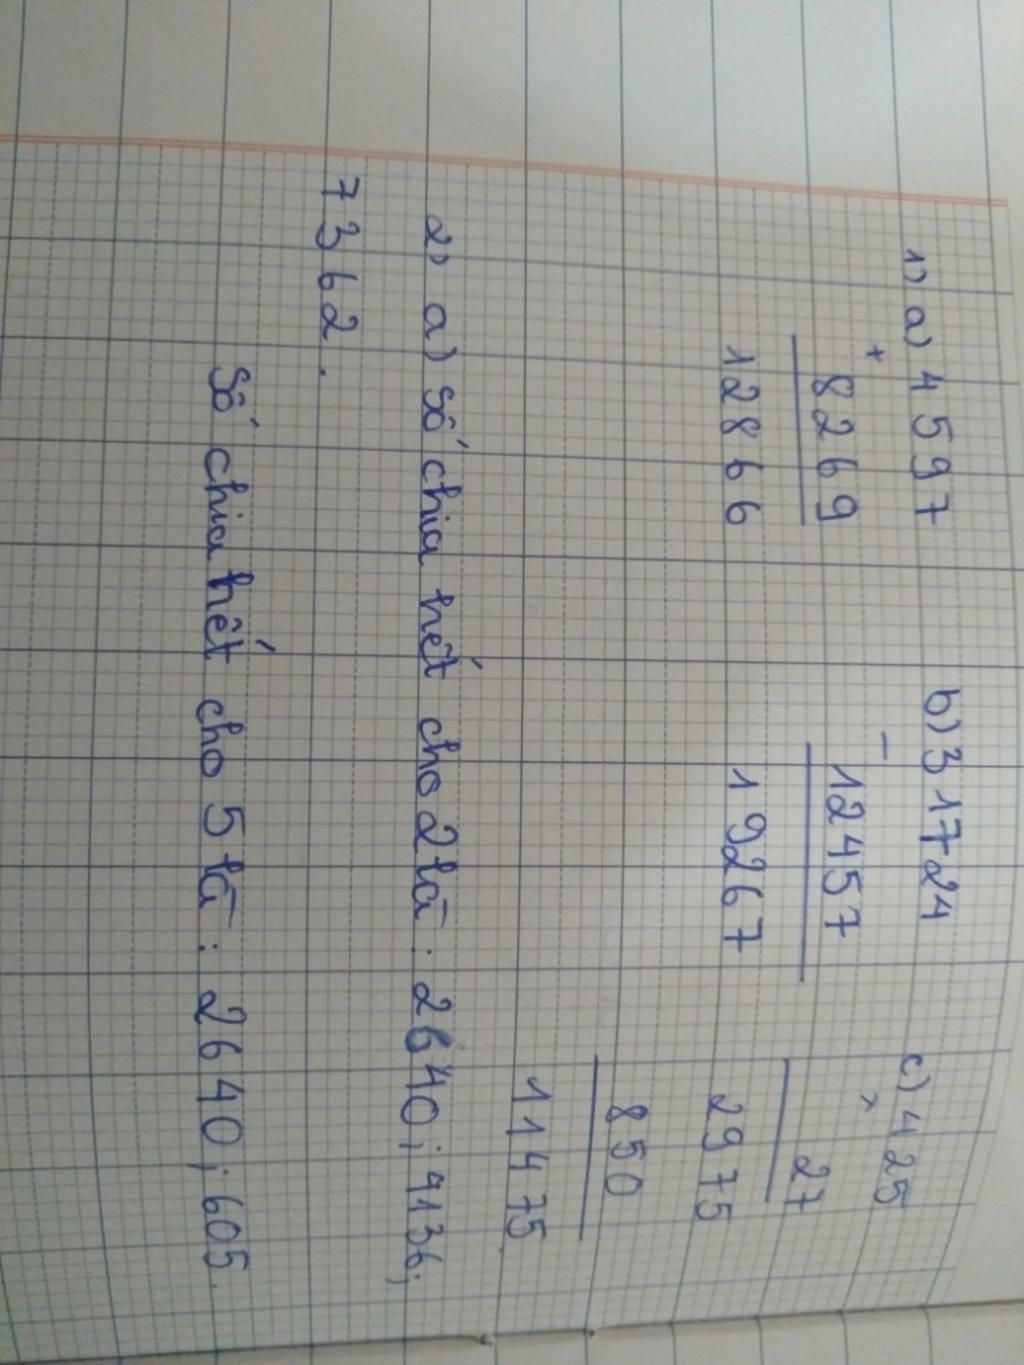 1) a) 4597 b) 31724 c) 425
+ - ×
8269 12457 27
12866 19267 2975
850
11475
2) a) Số chia hết cho 2 là: 2640; 4136;
7362.
Số chia hết cho 5 là: 2640; 605.